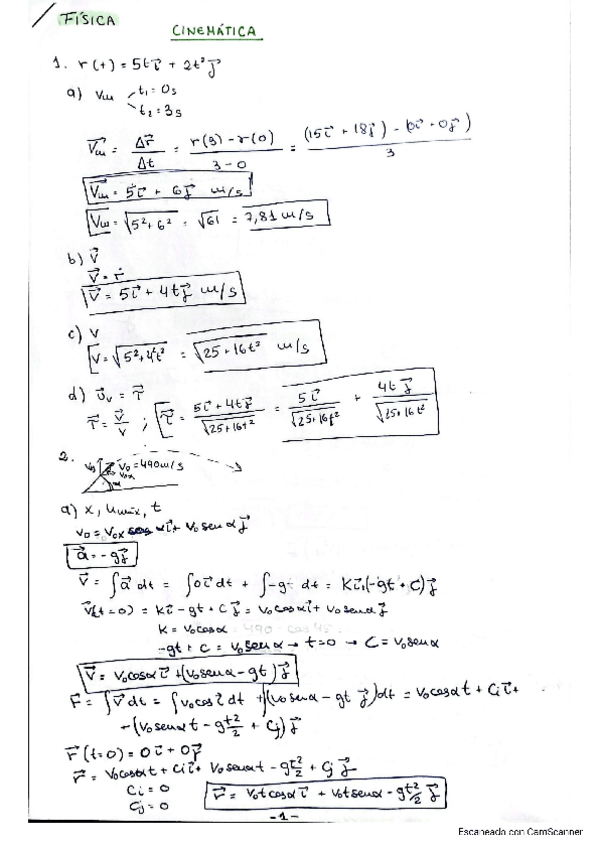 FÍSICA
CINEMÁTICA
1. r(t) = 5t i⃗ + 2t² j⃗
a) Vm t₁ = 0s
t₂ = 3s
V⃗m = Δr⃗/Δt = r(3) - r(0) / 3 - 0 = (15i⃗ + 18j⃗) - (0i⃗ + 0j⃗) / 3
V⃗m = 5i⃗ + 6j⃗ m/s
Vm = √5² + 6² = √61 = 7,81 m/s
b) V⃗
V⃗ = ṙ
V⃗ = 5i⃗ + 4t j⃗ m/s
c) v
V = √5² + 4²t² = √25 + 16t² m/s
d) u⃗v = τ⃗
τ⃗ = v⃗/v ; τ⃗ = 5i⃗ + 4t j⃗ / √25 + 16t² = 5i⃗ / √25 + 16t² + 4t j⃗ / √25 + 16t²
2.
V₀ = 490 m/s
V₀x
α
a) x, umix, t
a⃗ = -g j⃗
V⃗ = ∫a⃗ dt = ∫0i⃗ dt + ∫-g dt = K i⃗ + (-gt + C) j⃗
V(t=0) = K i⃗ - gt + C j⃗ = V₀cosα i⃗ + V₀senα j⃗
K = V₀cosα
-gt + C = V₀senα → t=0 → C = V₀senα
V⃗ = V₀cosα i⃗ + (V₀senα - gt) j⃗
r⃗ = ∫V⃗ dt = ∫V₀cos i⃗ dt + ∫(V₀senα - gt j⃗) dt = V₀cosαt + Ci i⃗ +
+ (V₀senαt - gt²/2 + Cj) j⃗
r⃗(t=0) = 0i⃗ + 0j⃗
r⃗ = V₀cosαt + Ci i⃗ + V₀senαt - gt²/2 + Cj j⃗
Ci = 0
Cj = 0
r⃗ = V₀tcosα i⃗ + V₀tsenα - gt²/2 j⃗
-1-
Escaneado con CamScanner